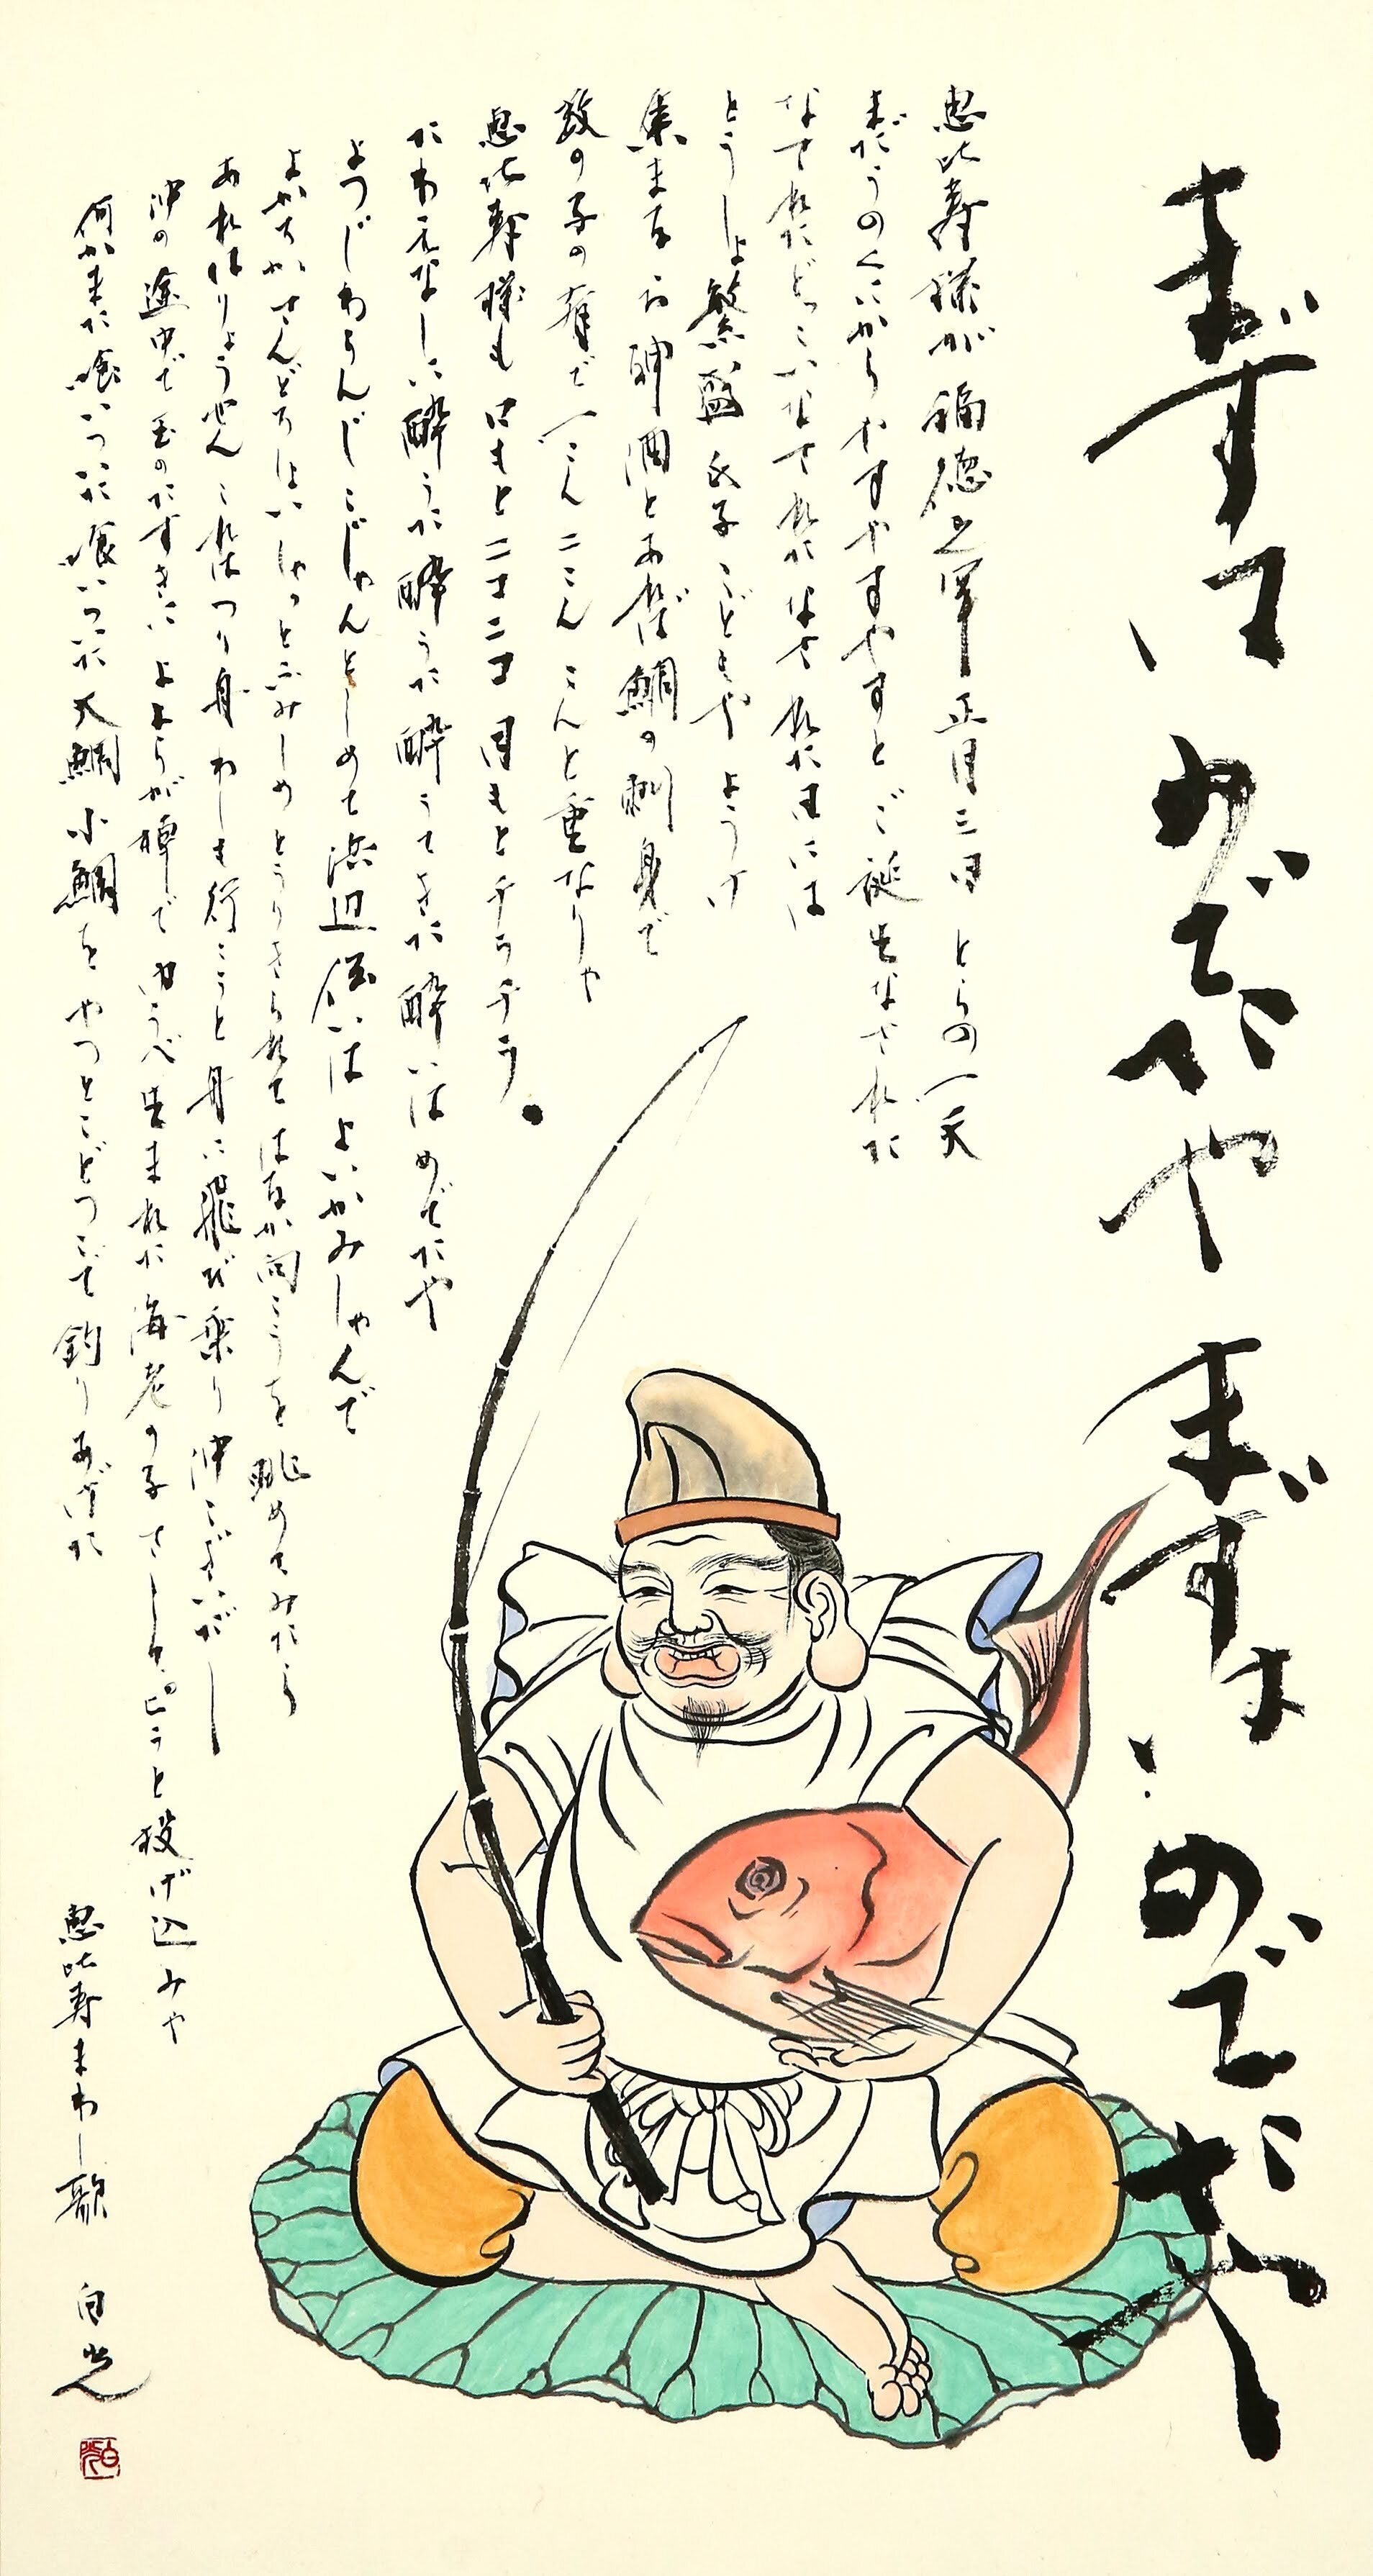 まずは めでたや まずは めでたや
恵比寿様が福徳元年正月三日 とらの一天
まだうのくにからやすやすやすやすと ご誕生なされた
なされたどっこいなされたなされた日には
とうしょ繁盛 氏子こどもや ようけ
集まる お神酒とあれば鯛の刺身で
数の子の肴で一こん二こん こんと重なりゃ
恵比寿様も口もとニコニコ目もとチラチラ
たわえなしに酔うた酔うた酔うてきた酔いはめでたや
よつじわらんじこじゃんとしめて浜辺伝いは よいかみしゃんで
しゃっとふみしめ とうりきられてはるか向こうを眺めてみたら
あれはりょうせんこれはつり舟 わしも行こうと舟に飛び乗り沖こぎいだし
沖の途中で玉のたすきに よようが棹で ゆうべ生まれた海老の子さして と投げ込みゃ
何かまた喰いついた喰いついた大鯛小鯛を やっとこどっこいて釣りあげた
恵比寿まわし歌 白光